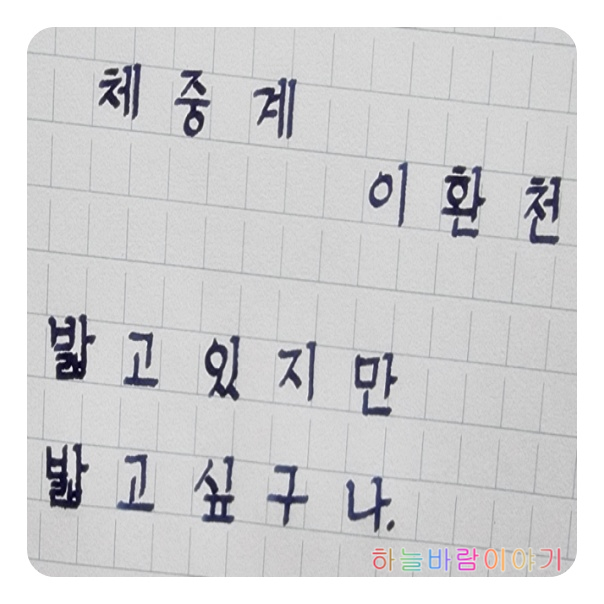 체중계
이환천
밟고있지만
밟고싶구나.
하늘바람이야기